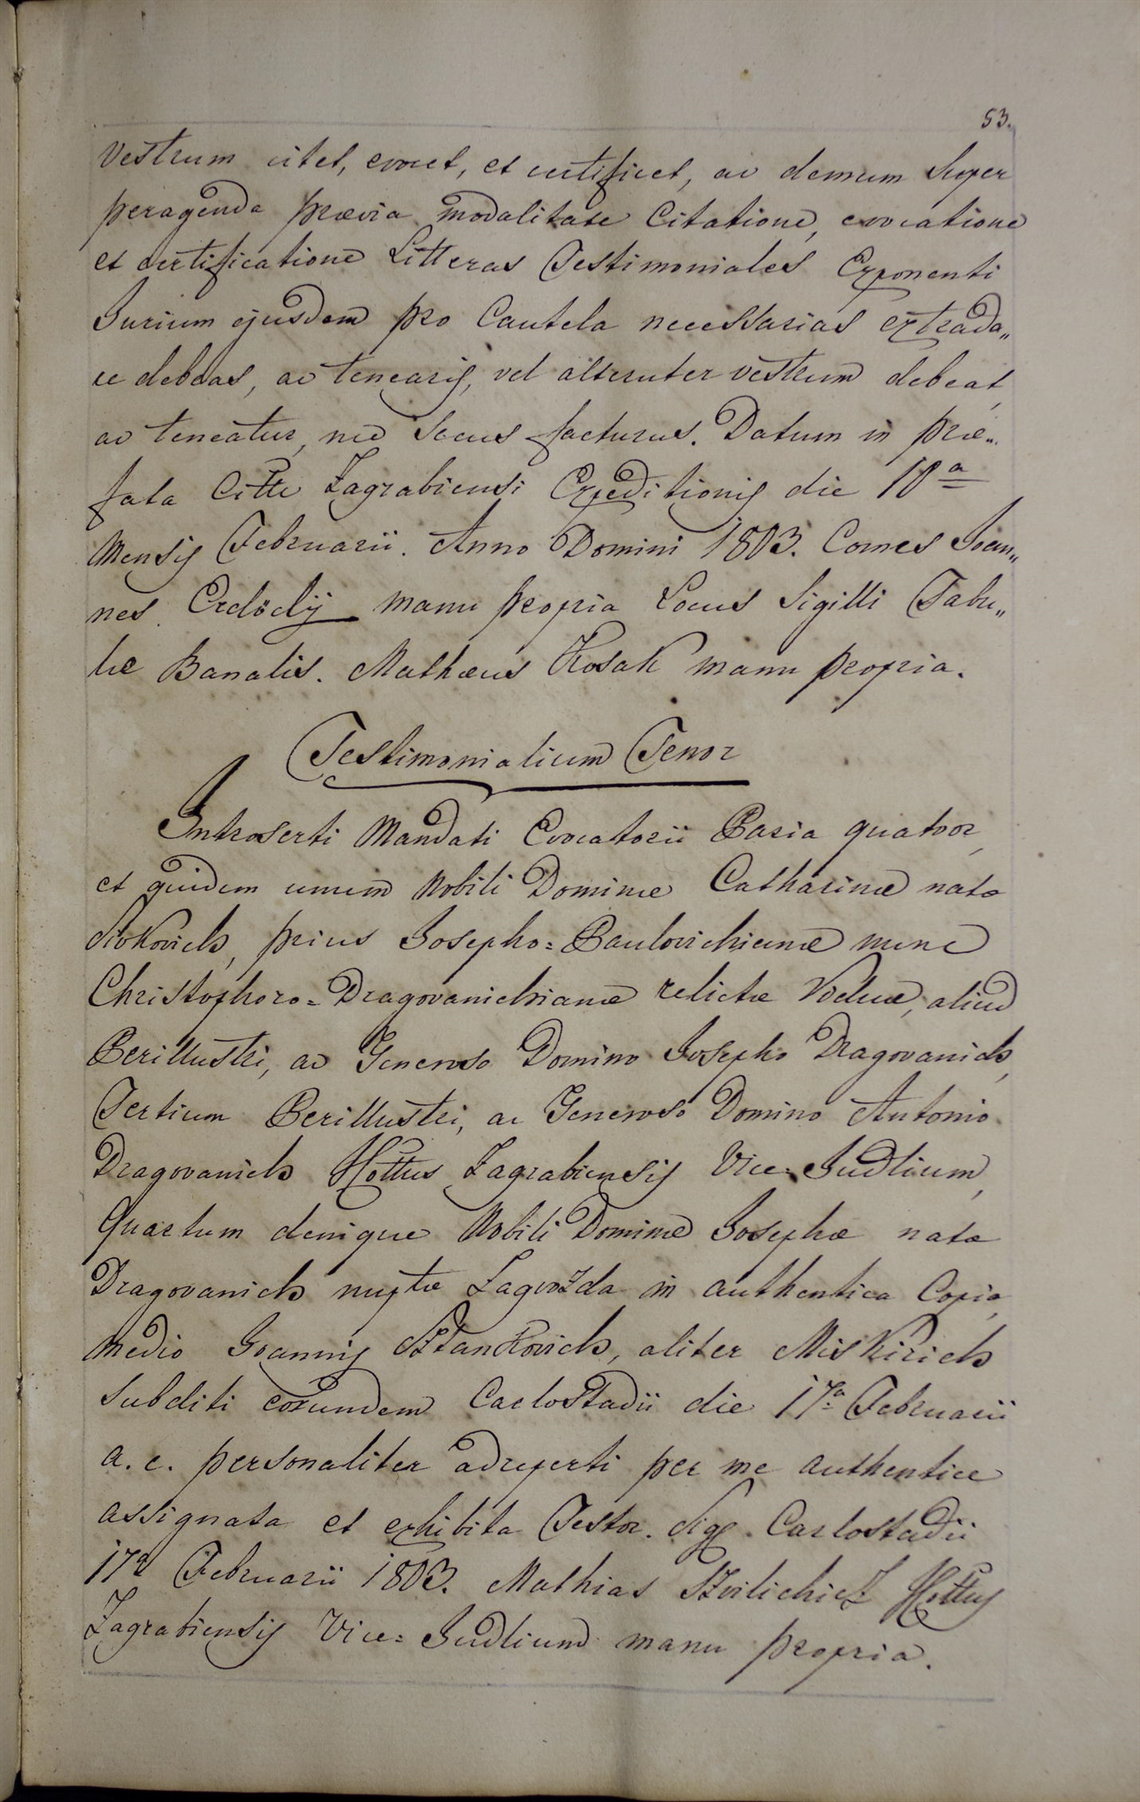 53.
Vestrum citet, evocet, et certificet, ac demum super
peragenda praevia modalitate Citatione, evocatione
et certificatione Litteras Testimoniales Exponenti
Jurium ejusdem pro Cautela necessarias extrada„
re debeas, ac tenearis, vel alteruter vestrum debeat,
ac teneatur, nec secus facturus. Datum in prae„
fata Cittu Zagrabiensi Expeditionis die 10a
Mensis Februarii. Anno Domini 1803. Comes Joan„
nes Erdödÿ manu propria Locus Sigilli Tabu„
lae Banalis. Mathaeus Kosak manu propria.
Testimonialium Tenor
Introserti Mandati Evocatorii Paria quatvor,
et quidem unum Nobili Dominae Catharinae natae
prius Josepho=Paulovichianae nunc
Christophoro=Dragovanichianae relictae Viduae, aliud
Perillustri, ac Generoso Domino Josepho Dragovanich,
Tertium Perillustri, ac Generoso Domino Antonio
Dragovanich Ittus Zagrabiensis Vice=Judlium,
Quartum denique Nobili Dominae Josephae natae
Dragovanich nuptae Lagvozda in authentica Copia,
medio Joannis Sztankovich, aliter Miskirich
Subditi eorundem Carlostadii die 17a Februarii
a. c. personaliter adreperti per me authentice
assignata et exhibita Testor. Sig. Carlostadii
17a Februarii 1803. Mathias Ittus
Zagrabiensis Vice=Judlium manu propria.